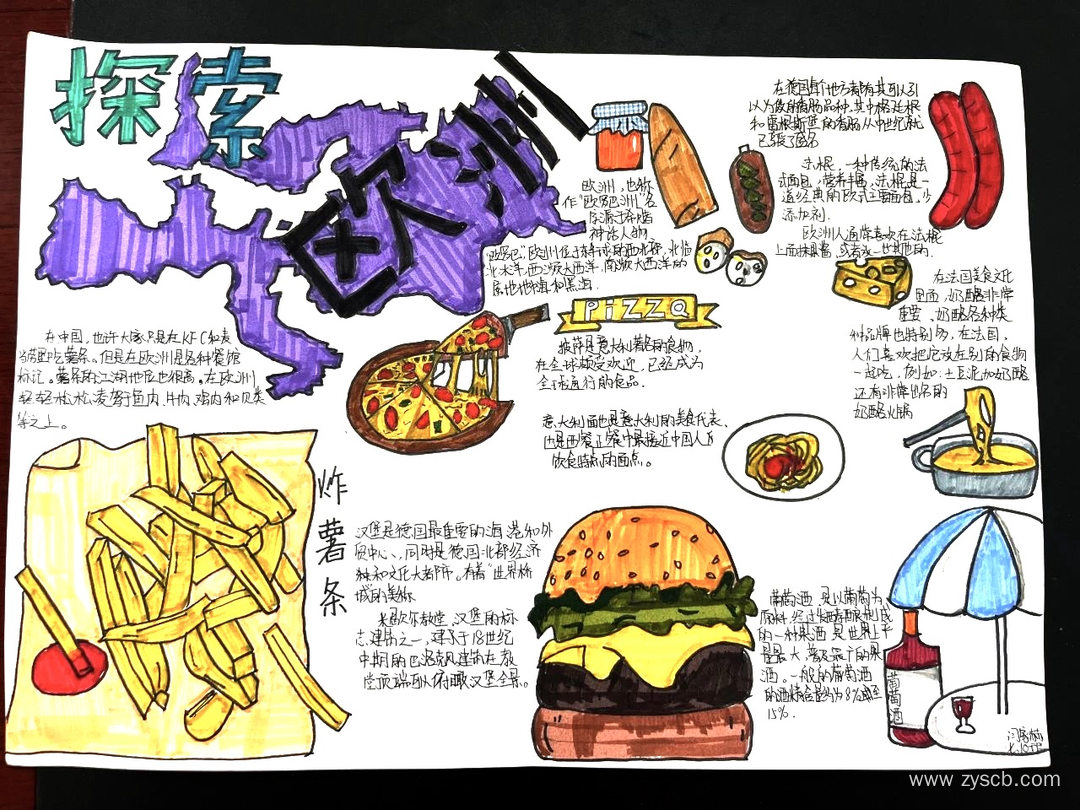 探索
欧洲
欧洲，也称
作“欧罗巴洲”名
字源于希腊
神话人物
“欧罗巴”欧洲位于东半球的西北部，北临
北冰洋，西濒大西洋，南濒大西洋的
属地中海和黑海。
在德国
和
的香肠从中世纪就
已
法棍，一种传统的法
式面包，营养丰富，法棍是一
道经典的欧式主要面包，少
添加剂．
欧洲人通常喜欢在法棍
上面抹酱，或者
在法国美食文化
里面，奶酪非常
重要、奶酪各种类
和品牌也特别多，在法国，
人们喜欢把它放在别的食物
一起吃，例如：土豆泥加奶酪
还有非常出名的
奶酪火锅
PiZZQ
披萨是意大利都的食物，
在全球颇受欢迎，已经成为
全球通行的食品．
意大利面也是意大利的美食代表、
也是西餐正餐中最接近中国人的
饮食特点的面点。
在中国，也许大家只是在KFC和麦
当劳里吃薯条。但是在欧洲是各种餐馆
标记。薯条的江湖地位也很高。在欧洲
轻轻松松凌驾于鱼肉，牛肉，鸡肉和贝类
等之上。
炸薯条
汉堡是德国最重要的海港和外
贸中心、同时是德国北部经济
和文化大都市。有着“世界桥
城”的美称
米歇尔教堂，汉堡的标
志建筑之一，建于于18世纪
中期的巴洛克风建筑在教
堂顶端可以俯瞰汉堡全景。
葡萄酒，是以葡萄为
原料经过发酵酿制成
的一种果酒，是世界上产
量最大，普及最广的果
酒。一般的葡萄酒
的酒精含量约为8%至
15%．
葡萄酒
www.zyscb.com